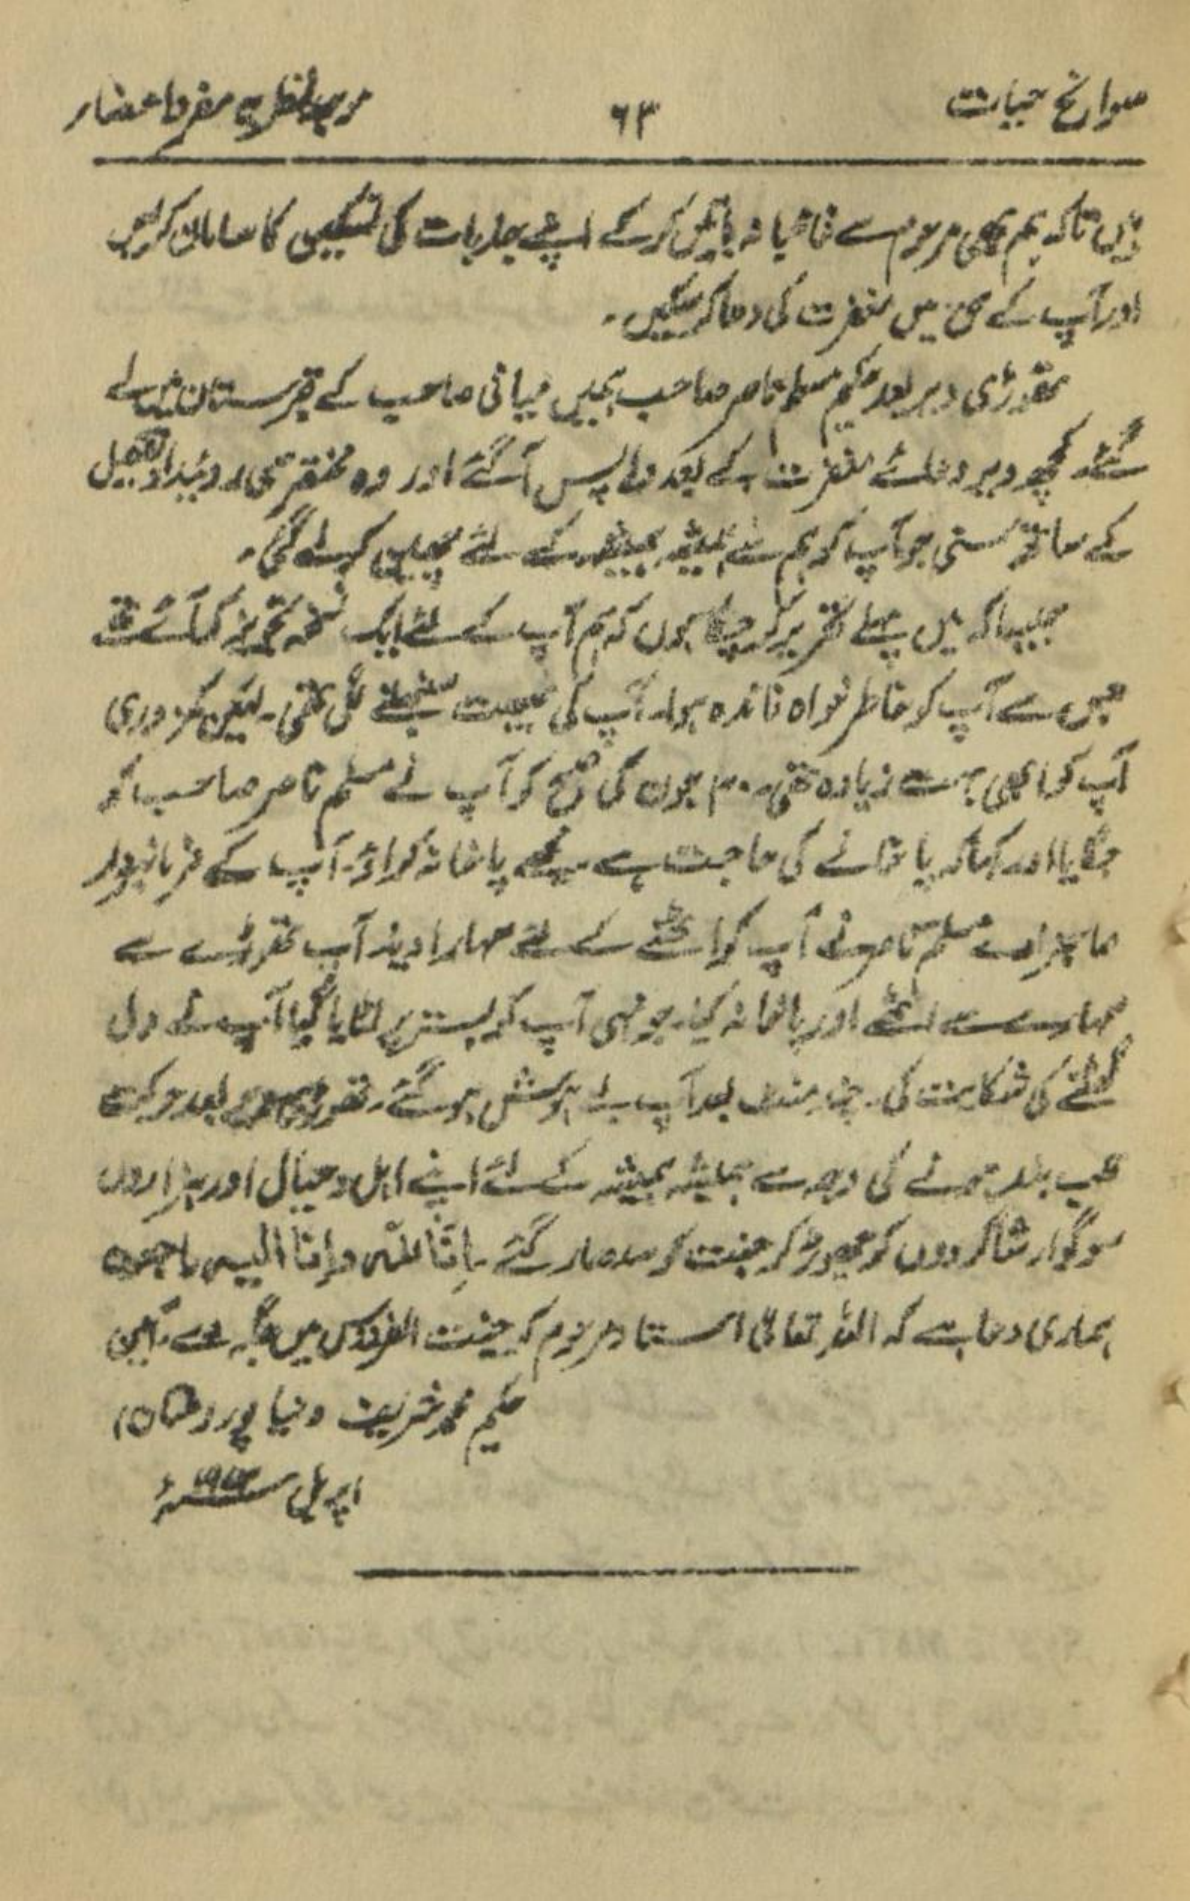 سوانح حیات ۶۳ مجدد نظریہ مفرد اعضاء
دیں تاکہ ہم بھی مرحوم سے غائبانہ باتیں کرکے اپنے جذبات کی تسکین کا سامان کریں
اور آپ کے حق میں مغفرت کی دعا کرسکیں۔
تھوڑی دیر بعد حکیم مسلم ناصر صاحب ہمیں میانی صاحب کے قبرستان میں لے
گئے۔ کچھ دیر دعائے مغفرت کے بعد واپس آگئے اور وہ مختصر سی روئیداد تفصیل
کے ساتھ سنی جو آپ کو ہم سے ہمیشہ ہمیشہ کے لئے چھین کر لے گئی۔
جیسا کہ میں پہلے تحریر کر چکا ہوں کہ ہم آپ کے لئے ایک نسخہ تجویز کر آئے تھے
جس سے آپ کو خاطر خواہ فائدہ ہوا۔ آپ کی طبیعت سنبھلنے لگی تھی۔ لیکن کمزوری
آپ کو ابھی بہت زیادہ تھی۔ ۳۰ جون کی صبح کو آپ نے مسلم ناصر صاحب کو
جگایا اور کہا کہ پاخانے کی حاجت ہے مجھے پاخانہ کراؤ۔ آپ کے فرمانبردار
صاحبزادے مسلم ناصر نے آپ کو اٹھنے کے لئے سہارا دیا۔ آپ تھوڑے سے
سہارے سے اٹھے اور پاخانہ کیا۔ جونہی آپ کو بستر پر لٹایا گیا آپ نے دل
گھٹنے کی شکایت کی۔ چند منٹ بعد آپ بے ہوش ہوگئے۔ تھوڑی دیر بعد حرکت
قلب بند ہونے کی وجہ سے ہمیشہ ہمیشہ کے لئے اپنے اہل و عیال اور ہزاروں
سوگوار شاگردوں کو چھوڑ کر جنت کو سدھار گئے۔ اِنَّا لِلّٰہ وَاِنَّا الیہ راجعون
ہماری دعا ہے کہ اللہ تعالیٰ استاد مرحوم کو جنت الفردوس میں جگہ دے۔ آمین
حکیم محمد شریف دنیا پور (ملتان)
اپریل